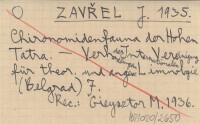 O ZAVŘEL J. 1935.
Chironomidenfauna der Hohen
Tatra. — Verh. der Internat. Vereinig.
für theor. und angew. Limnologie
(Belgrad) 7.
Rec.: Gieysztor M, 1936.